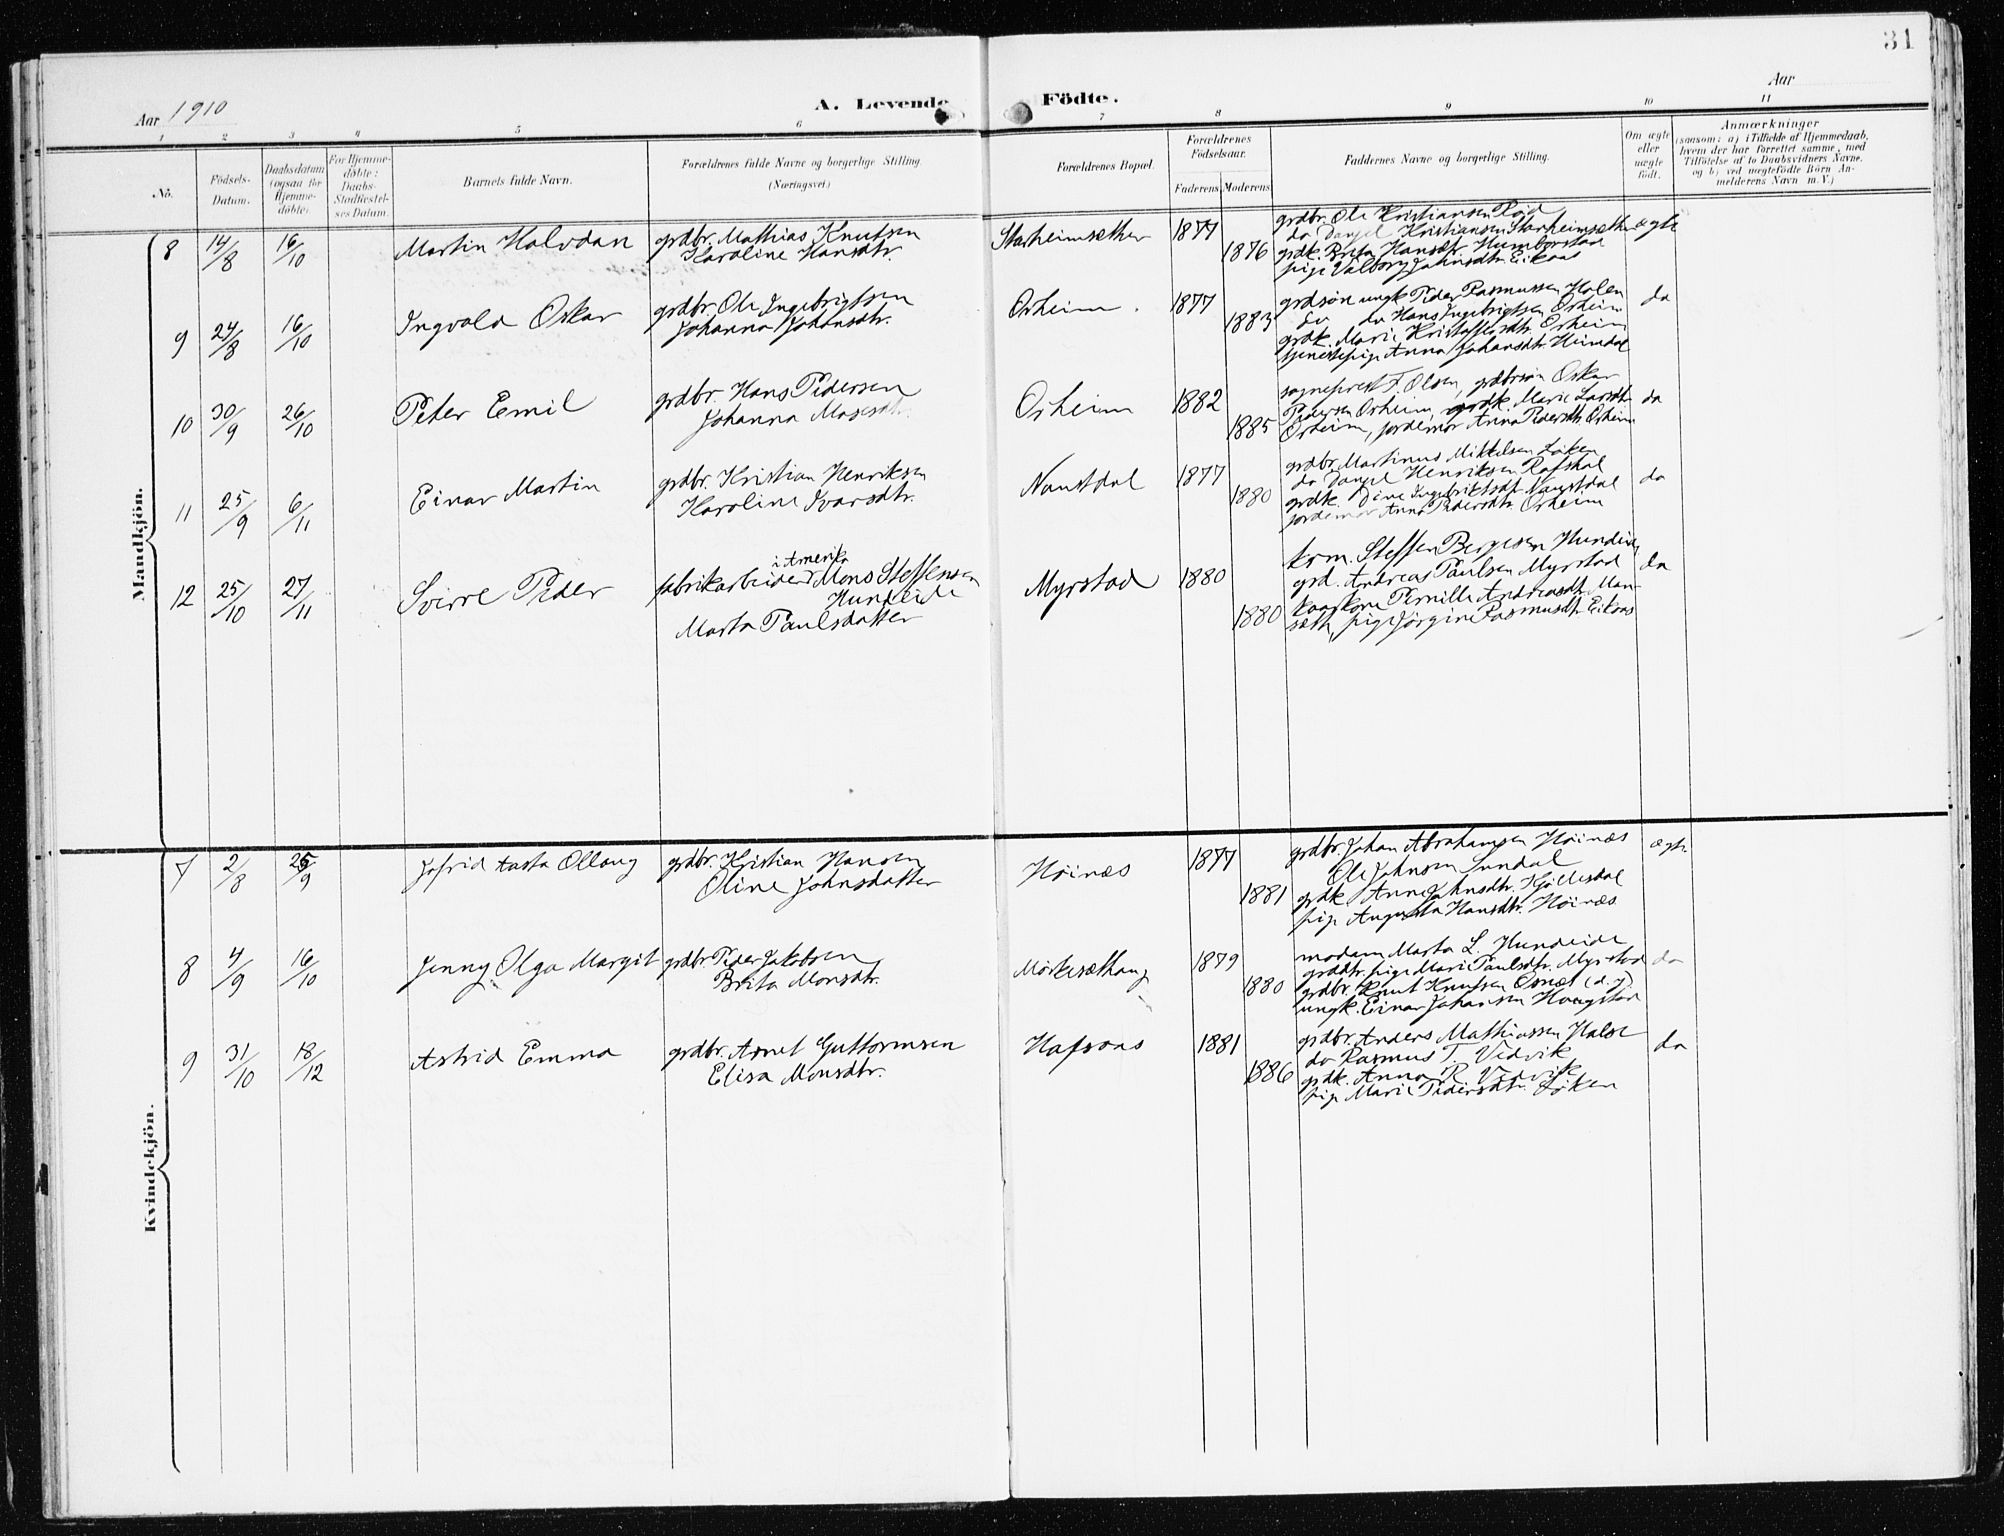 31
Aar 1910
A. Levende Födte.
Aar
1 2 3 4 5 6 7 8 9 10 11
No.
Födsels-Datum.
Daabsdatum (ogsaa for Hjemmedöbte)
For Hjemmedöbte: Daabs-Stadfæstelses Datum.
Barnets fulde Navn.
Forældrenes fulde Navne og borgerlige Stilling.
(Næringsvei.)
Forældrenes Bopæl.
Forældrenes Födselsaar.
Faderens Moderens
Faddernes Navne og borgerlige Stilling.
Om ægte eller uægte födt.
Anmærkninger
(saasom: a) i Tilfælde af Hjemmedaab,
hvem der har forrettet samme, med
Tilföielse af to Daabsvidners Navne,
og b) ved uægtefödte Börn An-
melderens Navn m. V.)
Mandkjön.
8 14/8 16/10 Martin Halvdan
grdbr. Mathias Knutsen
Karoline Hansdtr.
Starheimsæther 1877 1876
grdbr. Ole Kristiansen
do Daniel Kristiansen Starheimsæther
grdk. Brita Hansdtr Humborstad
pige Valborg Johnsdtr. Eikaas
ægte
9 24/8 16/10 Ingvald Oskar
grdbr. Ole Ingebrigtsen
Johanna Johansdtr.
Orheim. 1877 1883
grdsön ungk Peder Rasmussen Holen
do do Hans Ingebrigtsen Orheim
grdk. Marie Kristoffersdtr. Orheim
tjenestepige Anna Johansdtr. Heimdal
do
10 30/9 26/10 Peter Emil
grdbr. Hans Pedersen
Johanna Mosesdtr.
Orheim 1882 1885
sogneprest F. Olsen, grdbrsön Oskar
Pedersen Orheim, grdk. Marie Larsdtr
Orheim, jordemor Anna Pedersdtr. Orheim
do
11 25/9 6/11 Einar Martin
grdbr. Kristian Henriksen
Karoline Ivarsdtr.
Naustdal 1877 1880
grdbr. Martinus Mikkelsen Löken
do Daniel Henriksen Rafstal
grdk. Dine Ingebriktsdtr Naustdal
jordemor Anna Pedersdtr. Orheim
do
12 25/10 27/11 Sverre Peder
i Amerika
fabrikarbeider Mons Steffensen
Hundeide
Marta Paulsdatter
Myrstad 1880 1880
krm. Steffen Bergesen Hundeide
grd. Andreas Paulsen Myrstad
kaarkone Pernille Andreasdtr. Man-
sæth, pige Jörgine Rasmusdtr. Eikaas
do
Kvindekjön.
7 2/8 25/9 Jofrid Aasta Ollaug
grdbr. Kristian Hansen
Oline Johnsdatter
Höinæs 1877 1881
grdbr. Johan Abrahamsen Höinæs
Ole Johnsen Sundal
grdk. Anne Johnsdtr. Hjellesdal
pige Augusta Hansdtr. Höinæs
ægte
8 4/9 16/10 Jenny Olga Margit
grdbr. Peder Jakobsen
Brita Monsdtr.
Mörkesæthaug 1879 1880
madam Marta L. Hundeide
grddtr. pige Marie Paulsdtr. Myrstad
grdbr. Knut Knutsen Osnæs (d. y.)
ungk. Einar Johansen Haugstad
do
9 31/10 18/12 Astrid Emma
grdbr. Arnet Guttormsen
Elisa Monsdtr.
Hafsaas 1881 1886
grdbr. Anders Mathiassen Halse
do Rasmus T. Vedvik
grdk. Anna R. Vedvik
pige Marie Pedersdtr. Löken
do